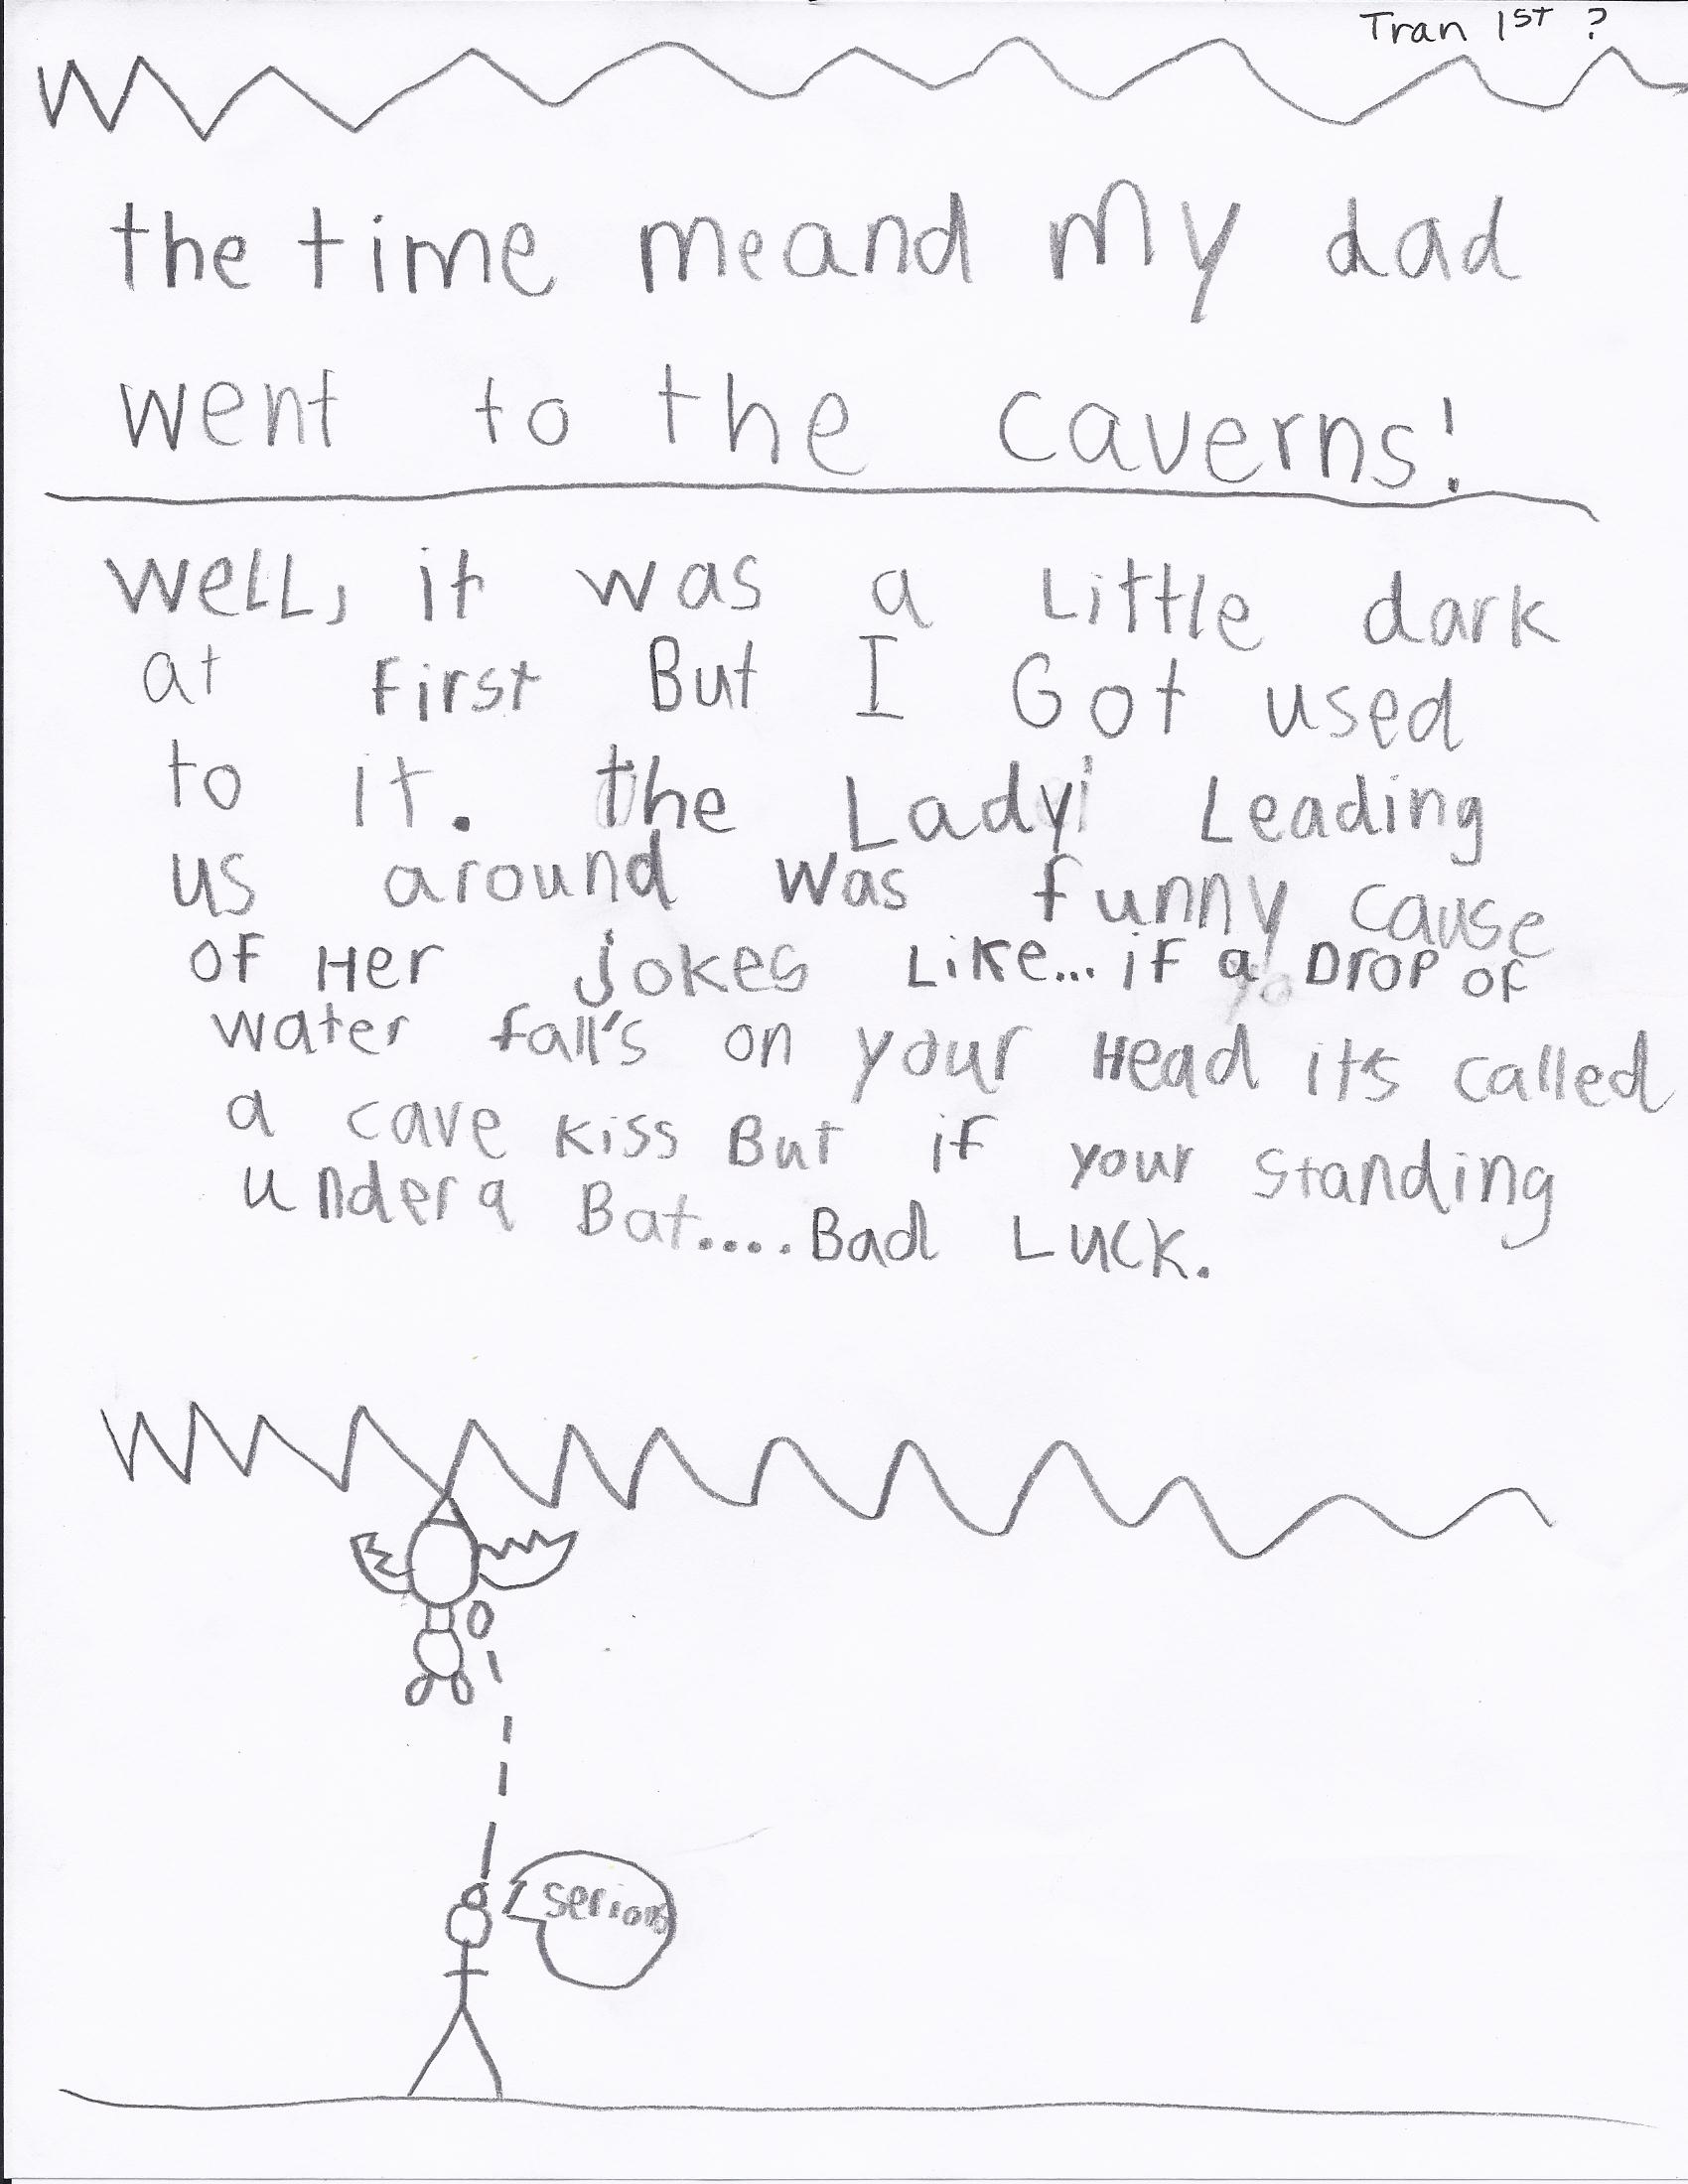 Tran 1st ?
the time meand my dad
went to the caverns!
well, it was a Little dark
at First But I Got used
to it. the Lady Leading
us around was funny cause
of Her jokes Like... if a Drop of
water fall's on your Head it's called
a cave kiss But if your standing
under a Bat.... Bad Luck.
serious